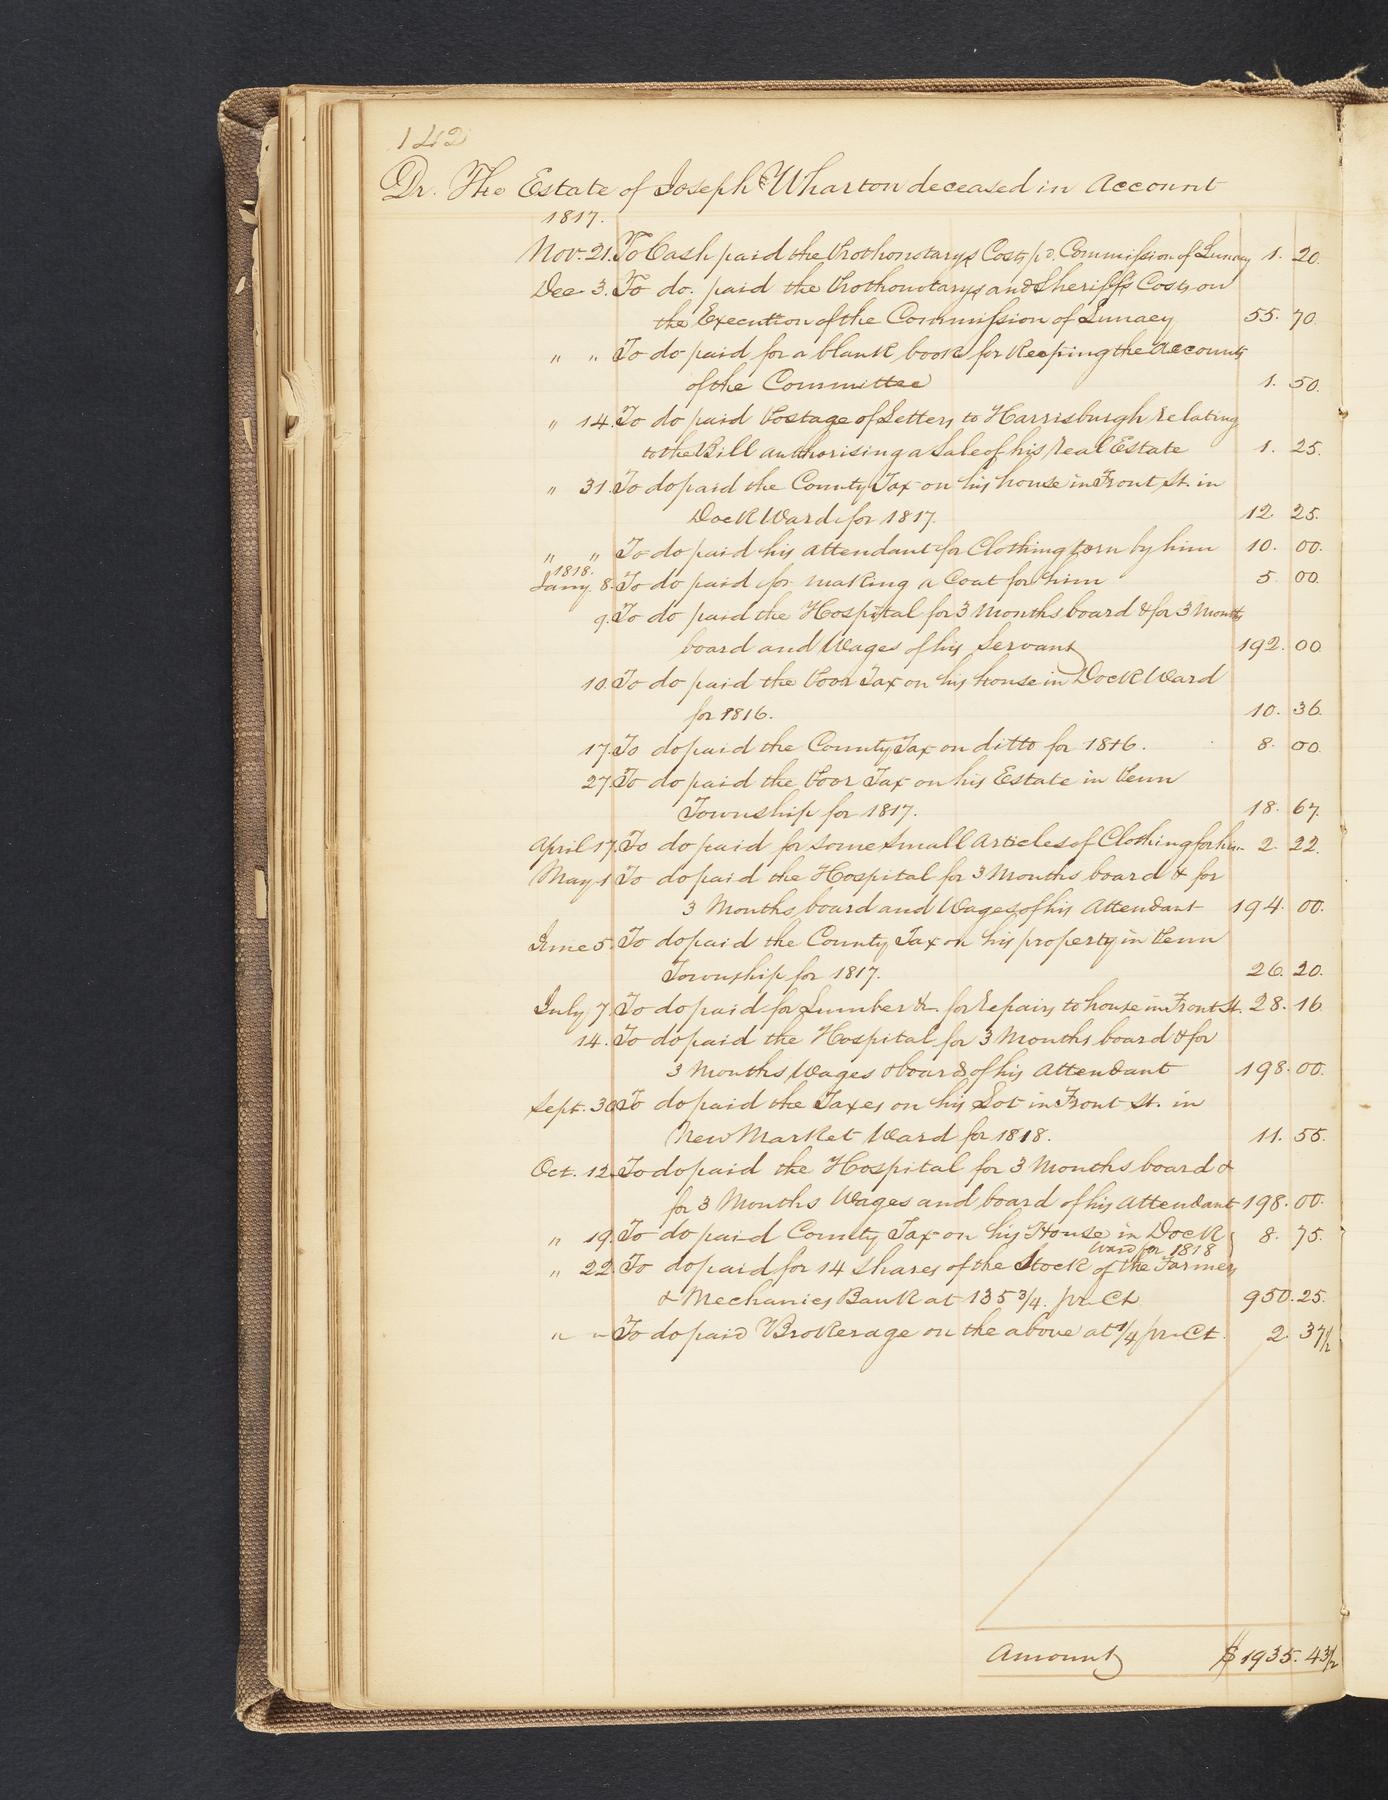 142
Dr. The Estate of Joseph Wharton deceased in Account
1817.
Nov. 21. To Cash paid the Prothonotarys Costs pd. Commission of Lunacy 1. 20.
Dec. 3. To do. paid the Prothonotarys and Sheriffs Costs on
the Execution of the Commission of Lunacy 55. 70.
" " To do paid for a blank book for Keeping the Accounts
of the Committee 1. 50.
" 14. To do paid Postage of Letters to Harrisburgh relating
to the Bill authorising a Sale of his real Estate 1. 25.
" 31. To do paid the County Tax on his house in Front St. in
Dock Ward for 1817. 12. 25.
" " To do paid his attendant for Clothing torn by him 10. 00.
1818.
Jany. 8. To do paid for making a Coat for him 5 00
9. To do paid the Hospital for 3 Months board & for 3 Months
board and Wages of his Servant 192. 00
10. To do paid the Poor Tax on his house in Dock Ward
for 1816. 10. 36.
17. To do paid the County Tax on ditto for 1816. 8. 00.
27. To do paid the Poor Tax on his Estate in Penn
Township for 1817. 18. 67.
April 17. To do paid for some small Articles of Clothing for him 2. 22.
May 1 To do paid the Hospital for 3 Months board & for
3 Months board and Wages of his Attendant 194. 00.
June 5. To do paid the County Tax on his property in Penn
Township for 1817. 26. 20.
July 7. To do paid for Lumber &c. for repairs to house in Front St. 28. 16
14. To do paid the Hospital for 3 Months board & for
3 Months Wages & board of his Attendant 198. 00.
Sept. 30 To do paid the Taxes on his Lot in Front St. in
New Market Ward for 1818. 11. 55.
Oct. 12. To do paid the Hospital for 3 Months board &
for 3 Months Wages and board of his Attendant 198. 00.
" 19. To do paid County Tax on his House in Dock 8. 75.
Ward for 1818
" 22 To do paid for 14 Shares of the Stock of the Farmers
& Mechanics Bank at 135 3/4. pr. Ct. 950. 25.
" " To do paid Brokerage on the above at 1/4 pr. Ct. 2. 37 1/2
Amount $ 1935. 43 1/2